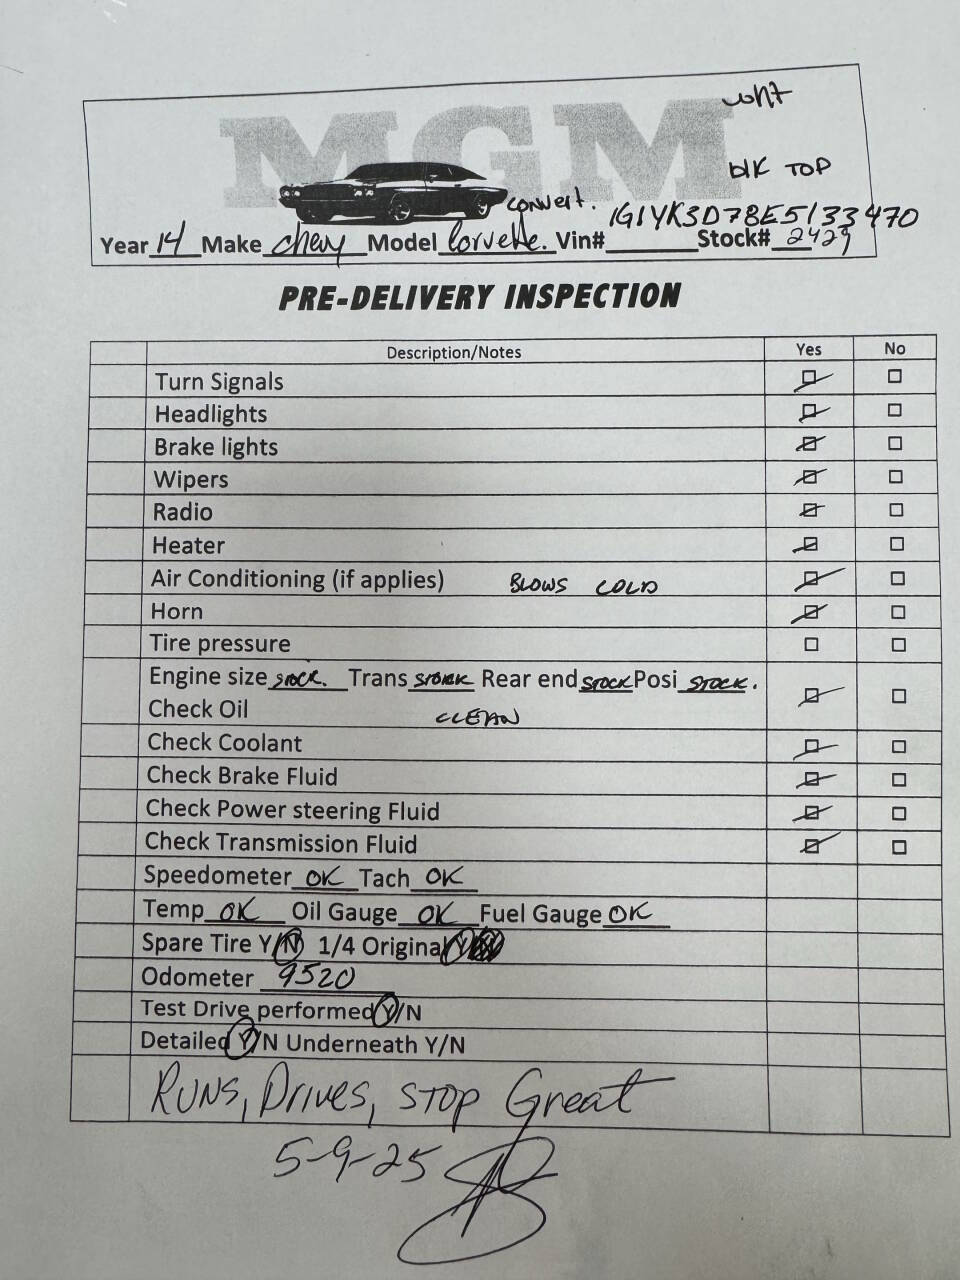 MGM
wht
blk TOP
convert.
1G1YK3D78E5133470
Year 14 Make Chevy Model Corvette. Vin# Stock# 2429
PRE-DELIVERY INSPECTION
Description/Notes Yes No
Turn Signals
Headlights
Brake lights
Wipers
Radio
Heater
Air Conditioning (if applies) BLOWS COLD
Horn
Tire pressure
Engine size STOCK. Trans STOCK Rear end STOCK Posi STOCK.
Check Oil CLEAN
Check Coolant
Check Brake Fluid
Check Power steering Fluid
Check Transmission Fluid
Speedometer OK Tach OK
Temp OK Oil Gauge OK Fuel Gauge OK
Spare Tire Y/N 1/4 Original Y/N
Odometer 9520
Test Drive performed Y/N
Detailed Y/N Underneath Y/N
RUNS, Drives, STOP Great
5-9-25